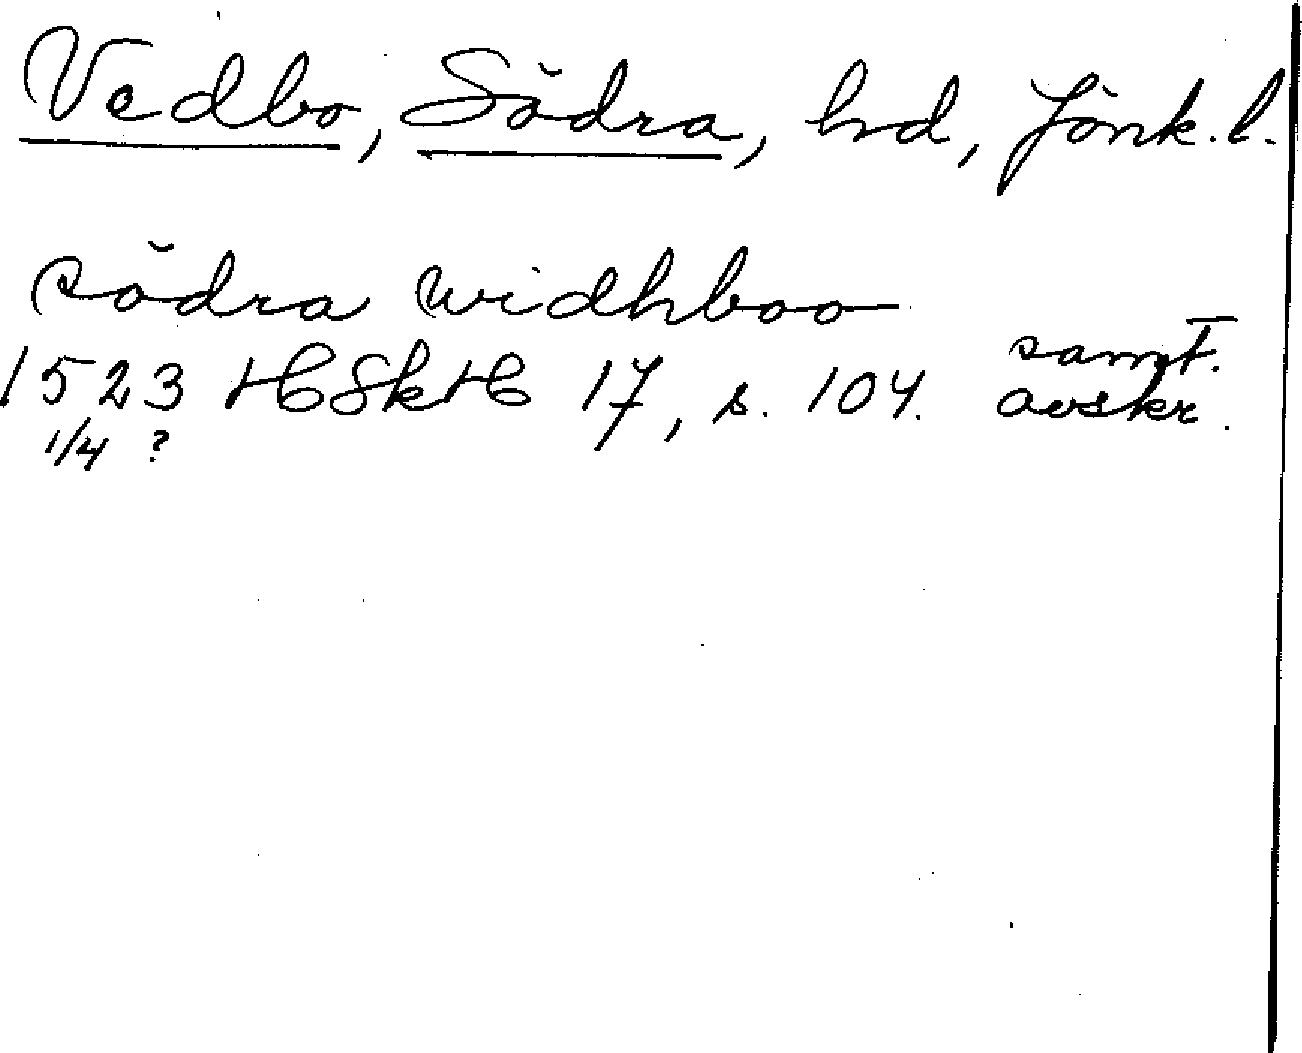 Vedbo, Södra, hd, Jönk. l.
södra widhboo
1523 HSkH 17, s. 104. samt. avskr.
1/4 ?